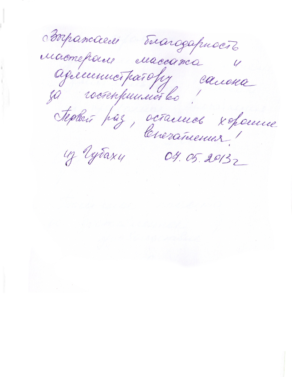 Выражаем благодарность
мастерам массажа и
администратору салона
за гостеприимство!
Первый раз, остались хорошие
впечатления!
из Губахи 04.05.2013г